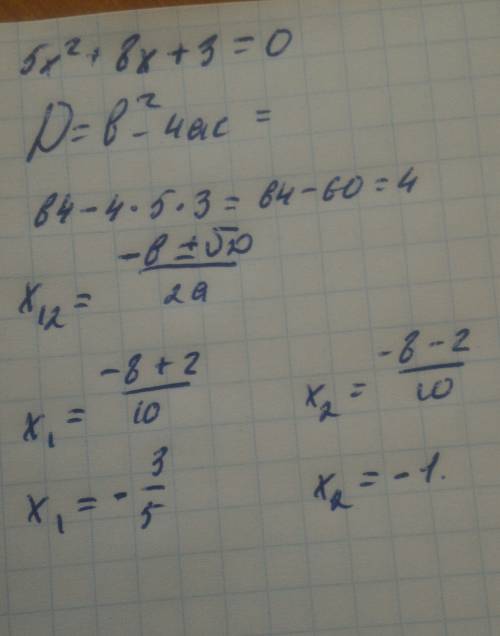 5x² + 8x + 3 = 0
D = b² - 4ac =
64 - 4 · 5 · 3 = 64 - 60 = 4
x₁₂ = (-b ± √D) / 2a
x₁ = (-8 + 2) / 10    x₂ = (-8 - 2) / 10
x₁ = - 3/5    x₂ = -1.